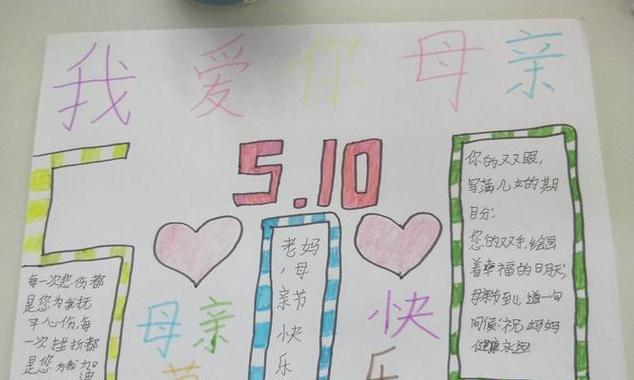 我爱你母亲
5.10
每一次悲伤都
是您为我抚
平心伤,每
一次挫折都
是您为我加
老妈
,母
亲节
快
乐
母亲
节
快
乐
你的双眼,
写满儿女的期
目分:
您的双手,绘画
着幸福的明天;
母亲节到,道一句
问候:祝妈妈
健康永远